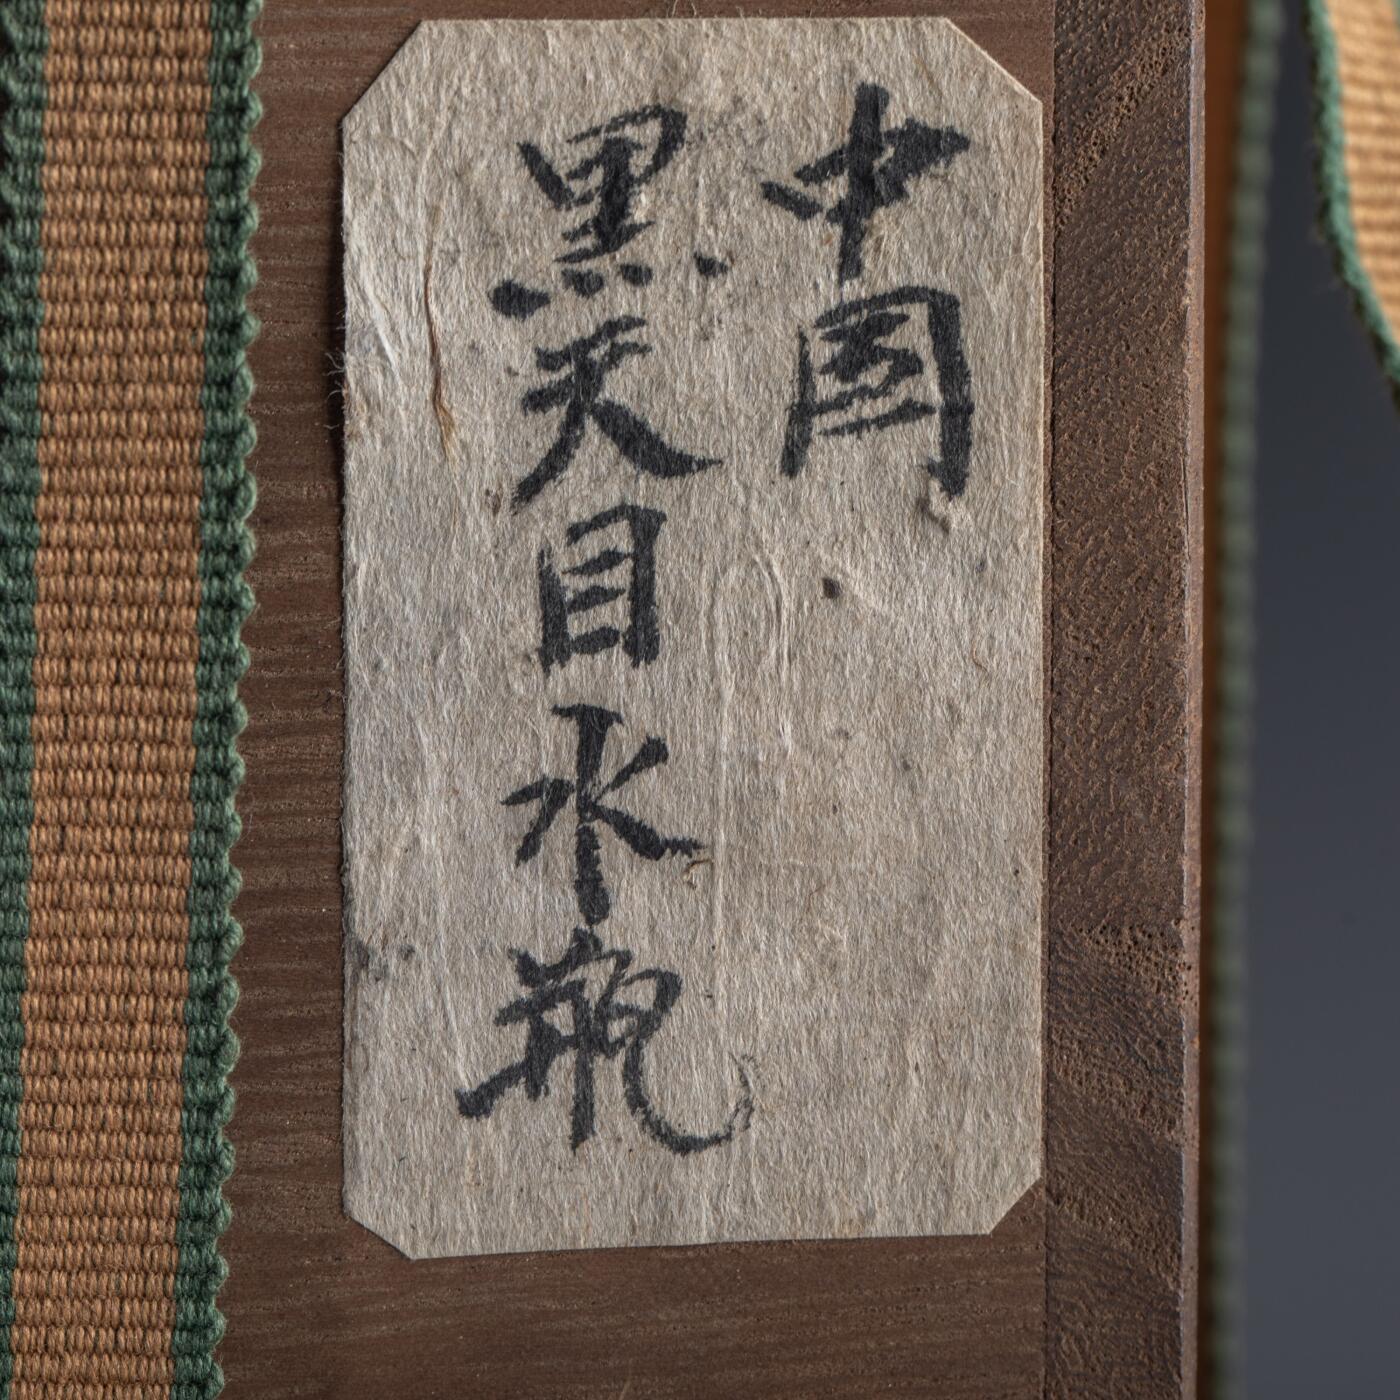 中国
黒天目水瓶